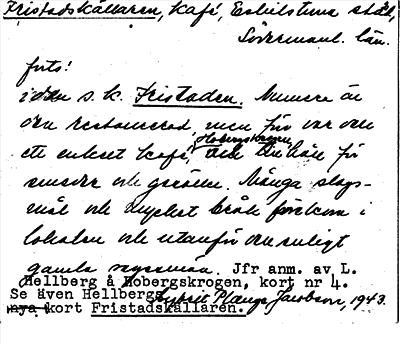 Fristadskällaren, Kafé, Eskilstuna stad,
Södermanl. län.
forts:
i den s.k. Fristaden. Numera är
den restaurerad, men förr var den
ett enkelt kafé, Hobergskrogen, och tillhåll för
smeder och gesäller. Många slags-
mål och mycket bråk förekom i
lokalen och utanför den enligt
gamla sagesmän. Jfr anm. av L.
Hellberg å Hobergskrogen, kort nr 4.
Se även Hellbergs
nya kort Fristadskällaren.
Jacobson, 1943.